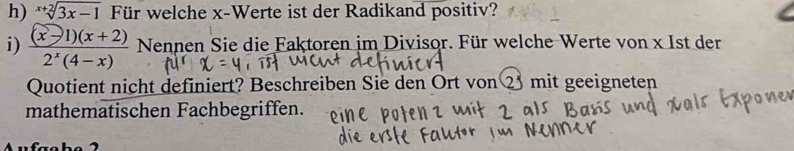 h) ˣ⁺²√3x−1 Für welche x-Werte ist der Radikand positiv?
i) (x−1)(x+2) / 2ˣ(4−x) Nennen Sie die Faktoren im Divisor. Für welche Werte von x Ist der
für x = 4, ist nicht definiert
Quotient nicht definiert? Beschreiben Sie den Ort von 2 mit geeigneten
mathematischen Fachbegriffen.
eine potenz mit 2 als Basis und x als Exponen
die erste Faktor im Nenner
Aufgabe 2